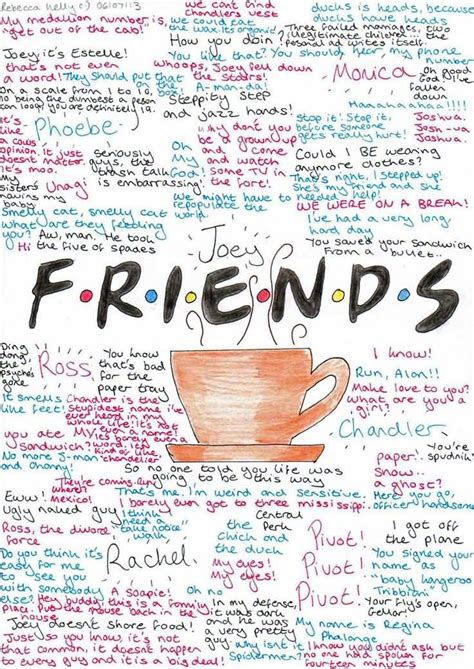 Rebecca Kelly c) 06/07/13
My medallion number is,
"get out of the cab!"
we can't find
Chandler's vest
ducks is heads, because
ducks have heads
Three failed marriages, two
illegitimate children... the
personal ad writes itself.
How you doin?
Joey it's Estelle!
that's not even
a word!
They should put that
on the
You like that? You should hear my phone
number
Whoops, Joey fell down
the stairs!
Monica
Oh good
On a scale from 1 to 10,
10 being the dumbest a person
can look, you are definitely 19.
A-man-da!
Steppity step
and jazz hands!
Haaahaahaa!!!!
It's
like
a cow's
opinion, it just
doesn't matter.
It's moo.
Phoebe
Seriously
guys, the
trash talk
is embarrassing
why don't you
be a grown up
and come
and watch
some TV in
the fort!
Oh
My
God!
Stop it! Stop it,
before someone
gets really hurt!
Joshua.
Josh-ua
Joshua.
Could I BE wearing
anymore clothes?
My
sister's
having my
baby
Unagi
That's right, I stepped up!
She's my friend and she
needed help!
We might have to
repopulate the
world.
WE WERE ON A BREAK!
Smelly cat, smelly cat
what are they feeding
you?
Aw, man. He took
the five of spades
Hi
I've had a very long
hard day
You saved your sandwich
from a bullet..
Joey
F•R•I•E•N•D•S
Ding
dong
the
psycho's
gone
Ross
You know
that's bad
for the
paper tray
I know!
Run, Alan!!
It smells
like feet!
Chandler is the
Stupidest name I've
ever heard in my
whole life. It's not
even a name
It's barely even a
word, it's
kind of like
chandelier
Make love to you?
What are you a
girl?
You ate
My
Sandwich?
Chandler
No more J-man
and Channy!
paper!.
Snow..
a ghost?
You're
Spudnik
So no one told you life was
going to be this way
They're coming
where?
Mexico!
That's me. I'm weird and sensitive.
Here you go,
officer handsome
Eww!
Ugly naked guy
I barely even got to three mississippi!
I think
need a
"take notice"
walk
Ross, the divorce
force
Central
the Perk
Chick and
the duck
Pivot!
Pivot!
Pivot!
I got off
the plane
Do you think it's
easy for me
to see you
with somebody
else?
Rachel
My eyes!
My eyes!
You signed your
name as
"baby kangaroo
Tribbiani"
A soapie!
Oh no
Hey buddy this is a family
place. Put the mouse back in the
mouse
In my defense,
it was
Your fly's open,
Geller!
Joey doesn't share food!
and he
was a very
pretty
guy
My name is Regina
Phalange
Just so you know, it's not
that common, it doesn't happen
to every guy and it is a big deal!
Why isn't it
Spiderman?
I know this is uncomfortable but
no one had spoken for